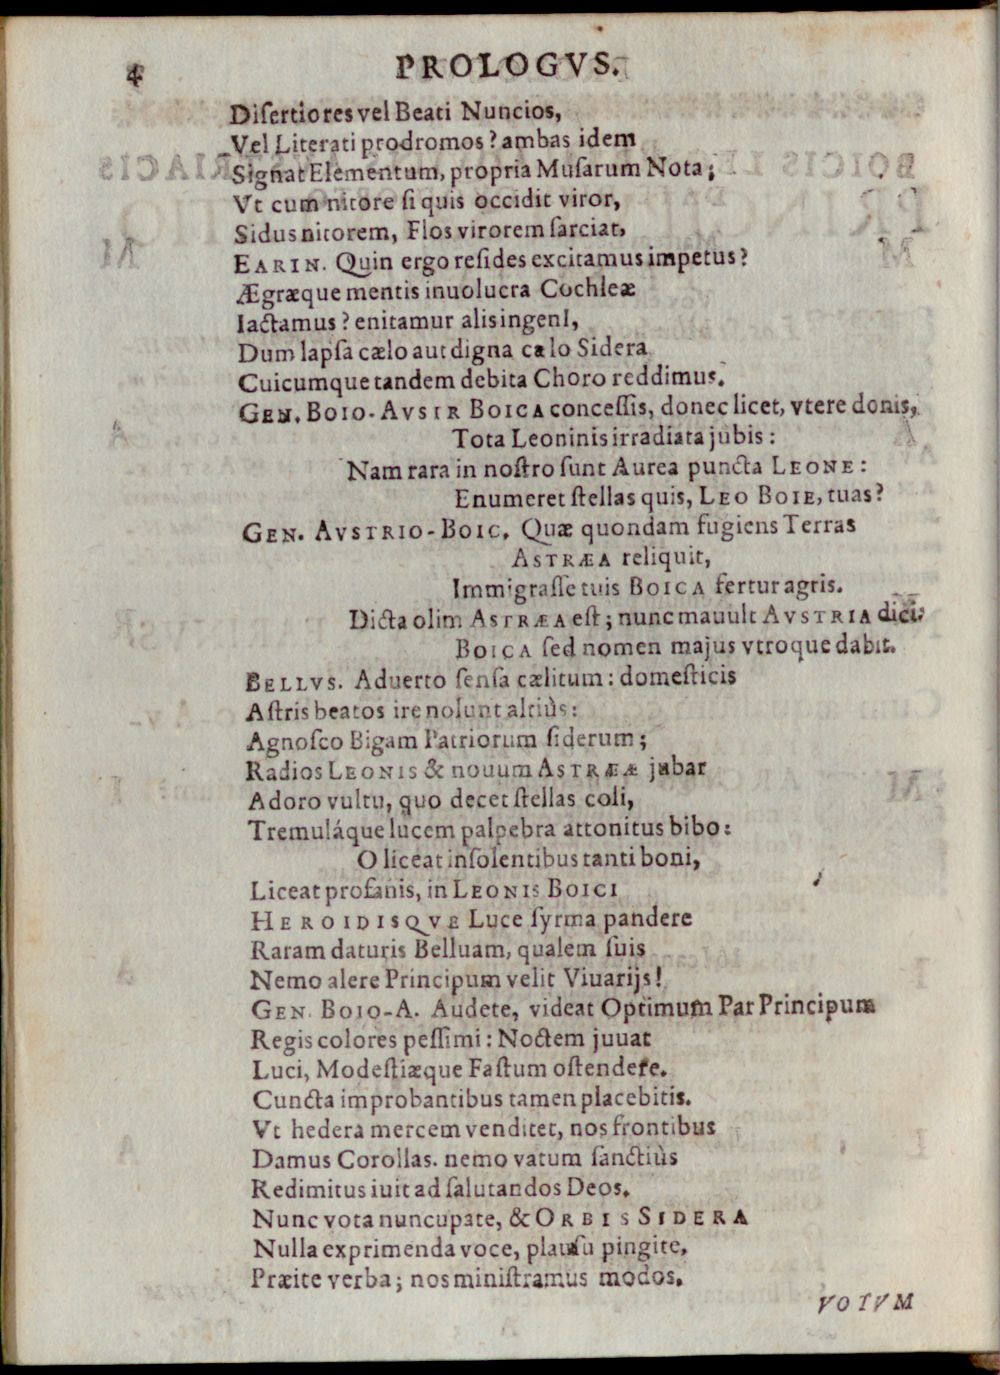 4 PROLOGVS.
Diſertiores vel Beati Nuncios,
Vel Literati prodromos? ambas idem
Signat Elementum, propria Muſarum Nota;
Vt cum nitore ſi quis occidit viror,
Sidus nitorem, Flos virorem ſarciat.
EARIN. Quin ergo reſides excitamus impetus?
Ægræque mentis inuolucra Cochleæ
Iactamus? enitamur alis ingenI,
Dum lapſa cælo aut digna cælo Sidera
Cuicumque tandem debita Choro reddimus.
GEN. BOIO-AVSTR BOICA conceſſis, donec licet, vtere donis,
Tota Leoninis irradiata jubis:
Nam rara in noſtro ſunt Aurea puncta LEONE:
Enumeret ſtellas quis, LEO BOIE, tuas?
GEN. AVSTRIO-BOIC. Quæ quondam fugiens Terras
ASTRÆA reliquit,
Immigraſſe tuis BOICA fertur agris.
Dicta olim ASTRÆA eſt; nunc mauult AVSTRIA dici:
BOICA ſed nomen majus vtroque dabit.
BELLVS. Aduerto ſenſa cælitum: domeſticis
Aſtris beatos ire nolunt altiùs:
Agnoſco Bigam Patriorum ſiderum;
Radios LEONIS & nouum ASTRÆÆ jubar
Adoro vultu, quo decet ſtellas coli,
Tremuláque lucem palpebra attonitus bibo:
O liceat inſolentibus tanti boni,
Liceat profanis, in LEONIS BOICI
HEROIDISQVE Luce ſyrma pandere
Raram daturis Belluam, qualem ſuis
Nemo alere Principum velit Viuarijs!
GEN. BOIO-A. Audete, videat Optimum Par Principum
Regis colores peſſimi: Noctem juuat
Luci, Modeſtiæque Faſtum oſtendere.
Cuncta improbantibus tamen placebitis.
Vt hedera mercem venditet, nos frontibus
Damus Corollas. nemo vatum ſanctiùs
Redimitus iuit ad ſalutandos Deos.
Nunc vota nuncupate, & ORBIS SIDERA
Nulla exprimenda voce, plauſu pingite.
Præite verba; nos miniſtramus modos.
VOTVM